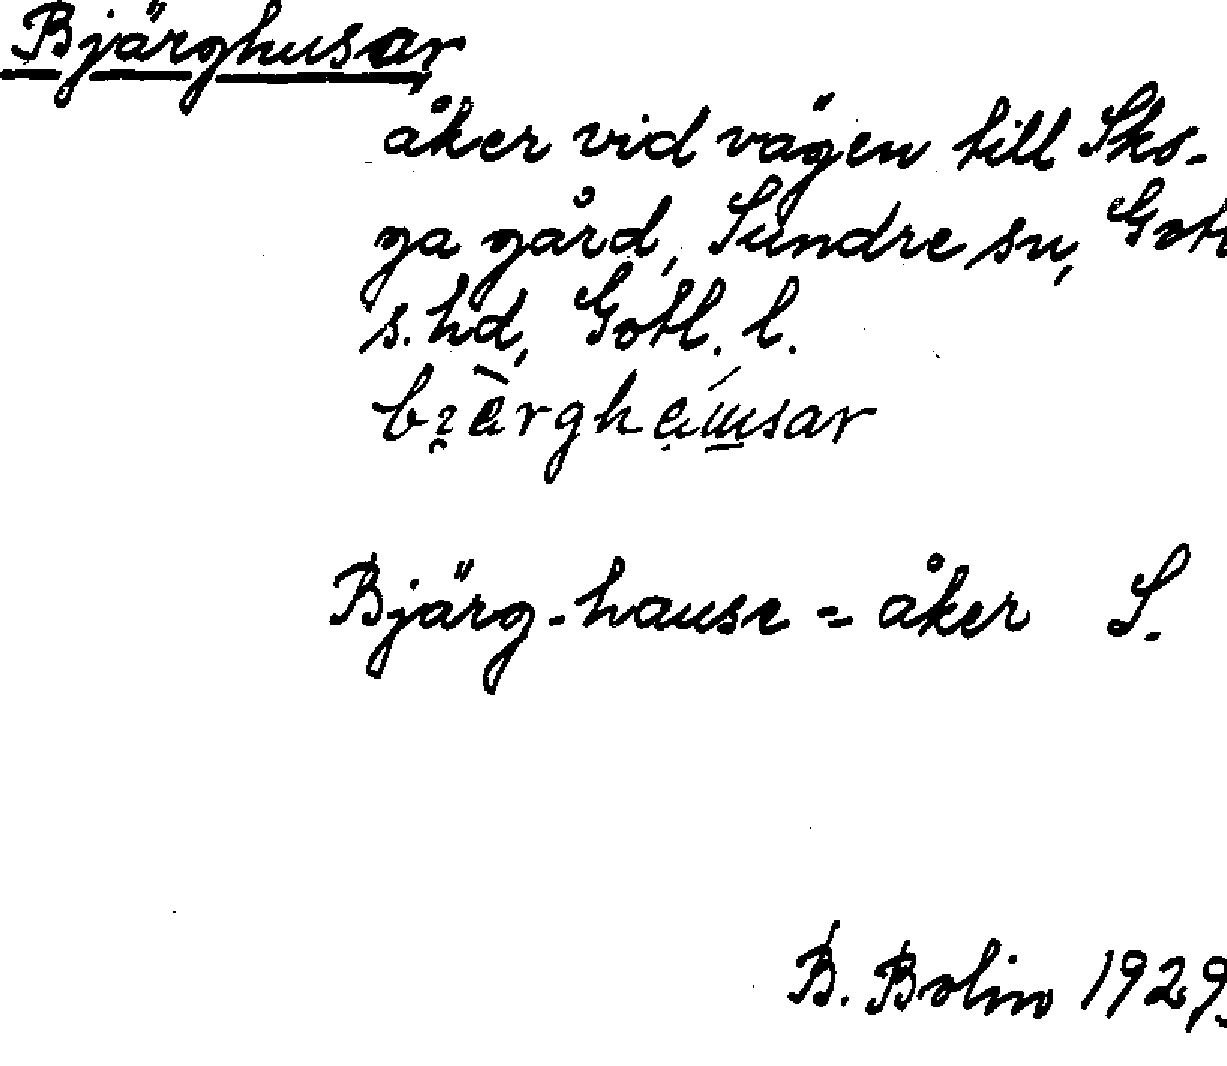 Bjärghusar
åker vid vägen till Sko-
ga gård, Sundre sn, Gotl
s. hd, Gotl. l.
Bjärg-hause = åker S.
B. Bolin 1929.